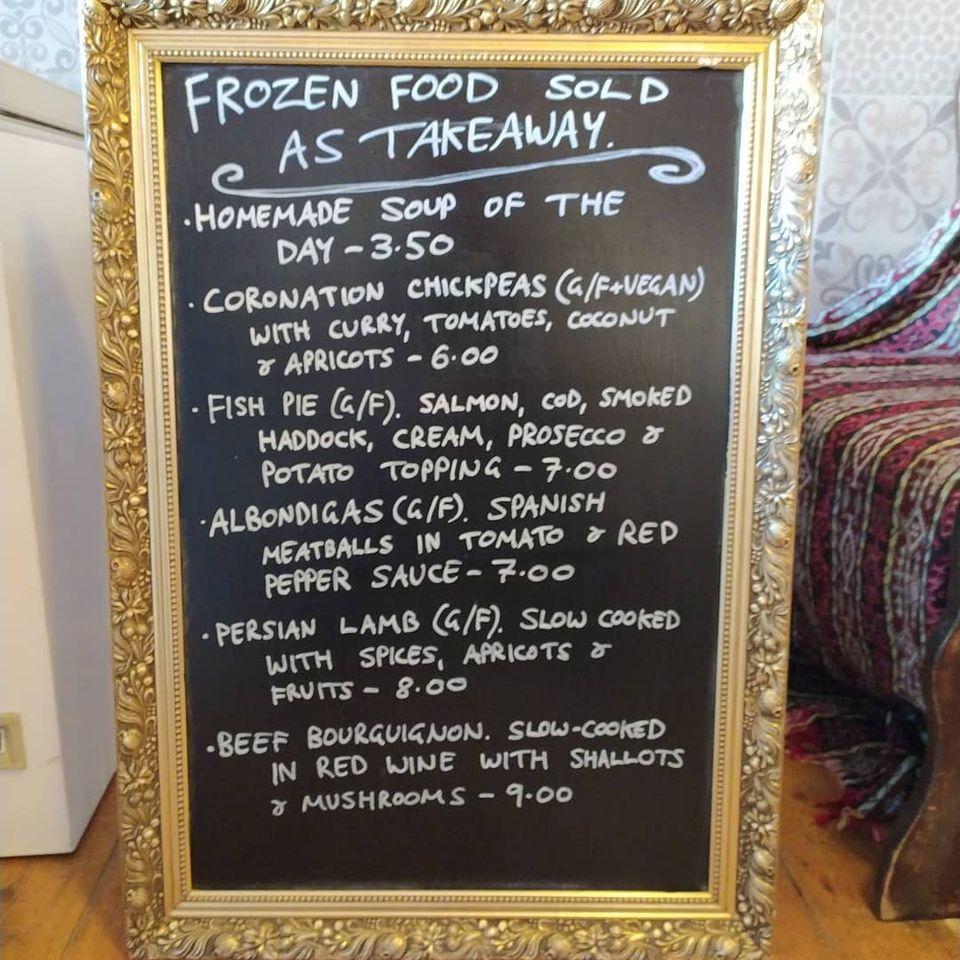 FROZEN FOOD SOLD
AS TAKEAWAY.
·HOMEMADE SOUP OF THE
DAY - 3.50
· CORONATION CHICKPEAS (G/F+VEGAN)
WITH CURRY, TOMATOES, COCONUT
& APRICOTS - 6.00
· FISH PIE (G/F). SALMON, COD, SMOKED
HADDOCK, CREAM, PROSECCO &
POTATO TOPPING - 7.00
·ALBONDIGAS (G/F). SPANISH
MEATBALLS IN TOMATO & RED
PEPPER SAUCE - 7.00
·PERSIAN LAMB (G/F). SLOW COOKED
WITH SPICES, APRICOTS &
FRUITS - 8.00
·BEEF BOURGUIGNON. SLOW-COOKED
IN RED WINE WITH SHALLOTS
& MUSHROOMS - 9.00